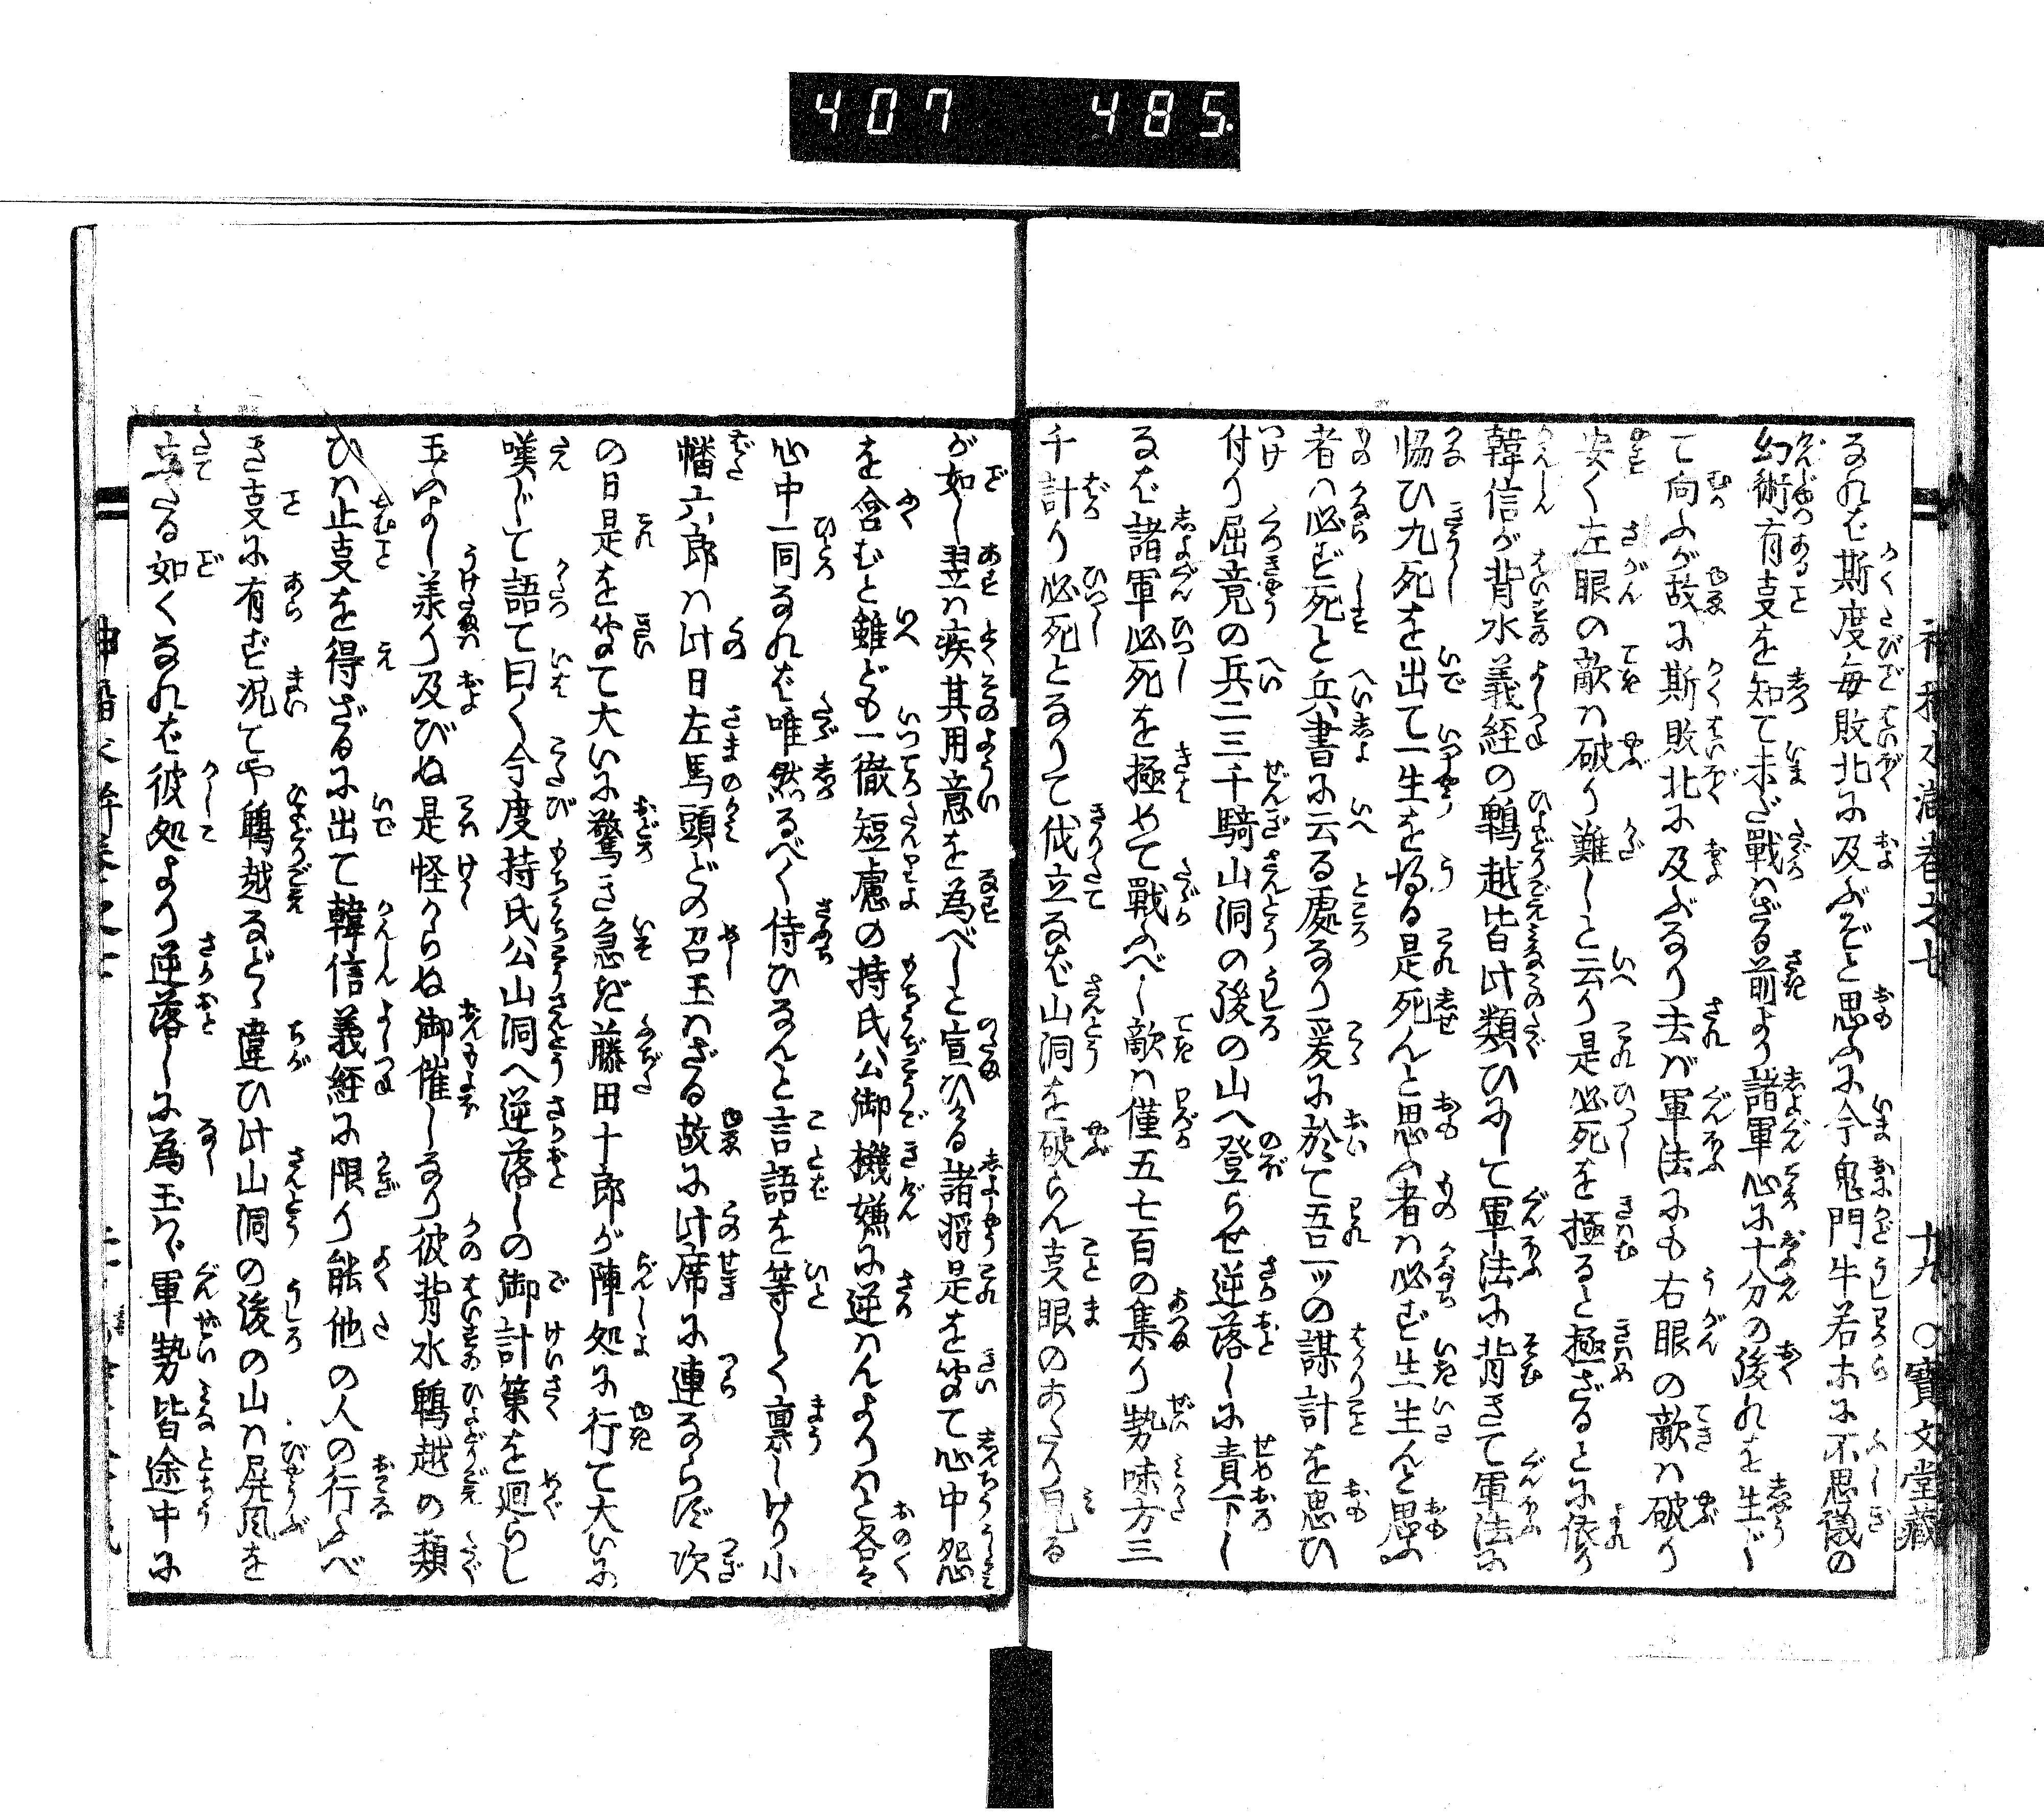 407 485.
十九 〇寶文堂藏
なれば斯度毎敗北に及ぶぞと思ふに今鬼門牛若ホに不思儀の
幻術有支を知て未ざ戰はざる前より諸軍心に十分の後れを生ジ
て向ふが故に斯敗北に及ぶなり去ば軍法にも右眼の敵ハ破り
安く左眼の敵ハ破り難しと云り是必死を極ると極ざるとに依り
韓信が背水義経の鵯越皆此類ひにして軍法に背きて軍法に
恊ひ九死を出て一生を得る是死んと思ふ者ハ必ず生生んと思ふ
者ハ必ず死と兵書に云る處なり爰に於て吾一ッの謀計を思ひ
付り屈竟の兵二三千騎山洞の後の山へ登らせ逆落しに責下し
るば諸軍必死を極めて戰ふべし敵ハ僅五七百の集り勢味方三
千計り必死となりて伐立なば山洞を破らん支眼のあたり見る
が如し翌ハ疾其用意を為べしと宣ひける諸将是を聞て心中怨
を含むと雖ども一徹短慮の持氏公御機嫌に逆ハんよりハと各々
心中一同なれば唯然るべく侍ひなんと言語を等しく禀しけり小
幡六郎ハ此日左馬頭どの召玉ハざる故に此席に連ならず次
の日是を聞て大いに驚き急ぎ藤田十郎が陣処に行て大いに
嘆じて語て曰く今度持氏公山洞へ逆落しの御計策を廻らし
玉ふよし羕り及びぬ是怪からぬ御催しなり彼背水鵯越の類
ひハ止支を得ざるに出て韓信義経に限り能他の人の行ふべ
き支に有ず况てや鵯越などゝ違ひ此山洞の後の山ハ屏風を
立たる如くなれば彼処より逆落しに為玉ハヾ軍勢皆途中に